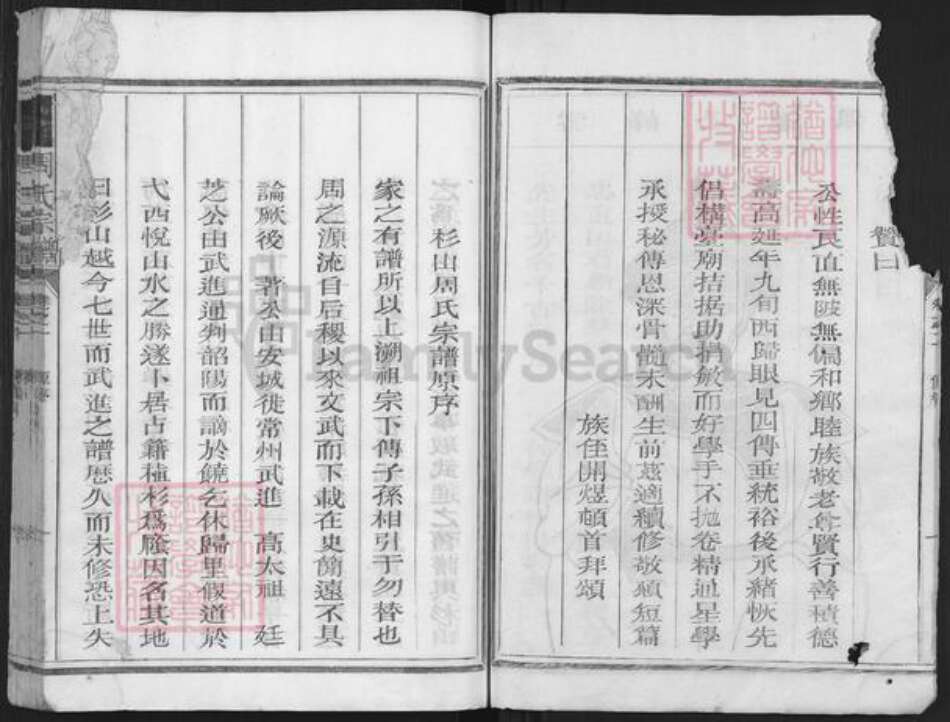 贊曰
公性良直無陂無偏和鄉睦族敬老尊賢行善積德
壽高延年九旬西歸眼見四傳垂統裕後承緒恢先
倡構堂廟拮据助捐敏而好學手不拋卷精通星學
承授秘傳恩深骨髓未酬生前慈適續修敬頌短篇
族侄開煜頓首拜頌
杉山周氏宗譜原序
家之有譜所以上溯祖宗下傳子孫相引于勿替也
周之源流自后稷以來文武而下載在史簡遠不具
論厥後 著公由安城徙常州武進 高太祖 廷
芝公由武進通判韶陽而謫於饒乞休歸里假道於
弋西悅山水之勝遂卜居占籍植杉為陰因名其地
曰杉山越今七世而武進之譜歷久而未修恐上失
周氏宗譜
FamilySearch